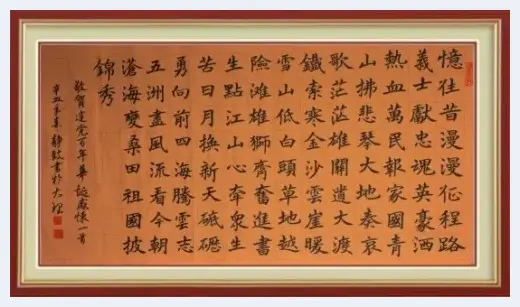 憶往昔漫漫征程路
義士獻忠魂英豪洒
熱血萬民報家國青
山拂悲琴大地奏哀
歌茫茫雄關道大渡
鐵索寒金沙雲崖暖
雪山低白頭草地越
險滩雄獅齊奮進書
生點江山心牽衆生
苦日月換新天砥礪
勇向前四海騰雲志
五洲盡風流看今朝
滄海變桑田祖國披
錦秀
敬賀建党百年華誕感懷一首
辛丑年 静 書於大理